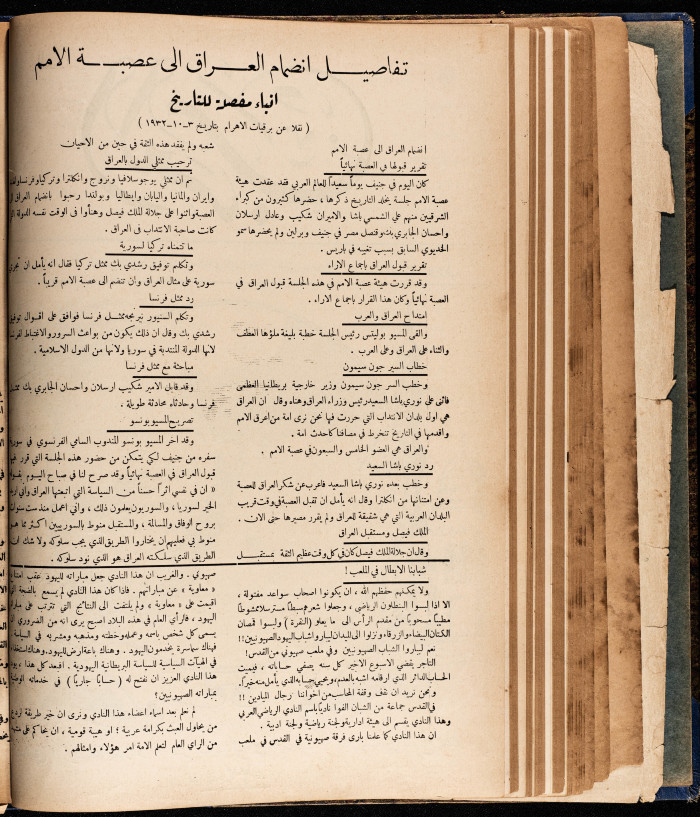 تفاصيل انضمام العراق الى عصبة الامم
انباء مفصلة للتاريخ
( نقلا عن برقيات الاهرام بتاريخ ٣-١٠-١٩٣٢ )
انضمام العراق الى عصبة الامم
تقرير قبولها في العصبة نهائياً
كان اليوم في جنيف يوماً سعيداً للعالم العربي فقد عقدت هيئة
عصبة الامم جلسة يخلد التاريخ ذكرها ، حضرها كثيرون من كبراء
الشرقيين منهم علي الشمسي باشا والاميران شكيب وعادل ارسلان
واحسان الجابري بك وقنصل مصر في جنيف وبرلين ولم يحضرها سمو
الخديوي السابق بسبب تغيبه في باريس .
تقرير قبول العراق باجماع الاراء
وقد قررت هيئة عصبة الامم في هذه الجلسة قبول العراق في
العصبة نهائياً وكان هذا القرار باجماع الاراء .
امتداح العراق والعرب
والقى المسيو بوليتس رئيس الجلسة خطبة بليغة ملؤها العطف
والثناء على العراق وعلى العرب .
خطاب السير جون سيمون
وخطب السر جون سيمون وزير خارجية بريطانيا العظمى
فاثنى على نوري باشا السعيد رئيس وزراء العراق وهناه وقال ان العراق
هي اول بلدان الانتداب التي حررت فها نحن نرى امة من اعرق الامم
واقدمها في التاريخ تنخرط في مصافنا كاحدث امة .
والعراق هي العضو الخامس والسبعون في عصبة الامم .
رد نوري باشا السعيد
وخطب بعده نوري باشا السعيد فاعرب عن شكر العراق للعصبة
وعن امتنانها من انكلترا وقال انه يأمل ان تقبل العصبة في وقت قريب
البلدان العربية التي هي شقيقة للعراق ولم يقرر مصيرها حتى الان .
الملك فيصل ومستقبل العراق
وقال ان جلالة الملك فيصل كان في كل وقت عظيم الثقة بمستقبل
شعبه ولم يفقد هذه الثقة في حين من الاحيان
ترحيب ممثلي الدول بالعراق
ثم ان ممثلي يوجوسلافيا ونروج وانكلترا وتركيا وفرنسا
وايران والمانيا واليابان وايطاليا وبولندا رحبوا بانضمام العراق
العصبة واثنوا على جلالة الملك فيصل وهنأوا في الوقت نفسه الدولة
كانت صاحبة الانتداب في العراق .
ما تتمناه تركيا لسورية
وتكلم توفيق رشدي بك ممثل تركيا فقال انه يأمل ان
سورية على مثال العراق وان تنضم الى عصبة الامم قريباً .
رد ممثل فرنسا
وتكلم السنيور ممثل فرنسا فوافق على اقوال توفيق
رشدي بك وقال ان ذلك يكون من بواعث السرور والاغتباط
لانها الدولة المنتدبة في سوريا ولانها من الدول الاسلامية .
مباحثة مع ممثل فرنسا
وقد قابل الامير شكيب ارسلان واحسان الجابري بك ممثل
فرنسا وحادثاه محادثة طويلة .
تصريح المسيو بونسو
وقد اخر المسيو بونسو المندوب السامي الفرنسوي في
سفره من جنيف لكي يتمكن من حضور هذه الجلسة التي قرر فيها
قبول العراق في العصبة نهائياً وقد صرح لنا في صباح اليوم
« ان في نفسي اثراً حسناً من السياسة التي اتبعتها العراق واني
الخير لسوريا ، والسوريون يعلمون ذلك ، واني اعمل منذ ست سنوات
بروح الوفاق والمسالمة ، والمستقبل منوط بالسوريين اكثر مما هو
منوط بي فعليهم ان يختاروا الطريق الذي يجب سلوكه ولا شك
الطريق الذي سلكته العراق هو الذي نود سلوكه .
شبابنا الابطال في الملعب !
ولا يمكنهم حفظهم الله ، ان يكونوا اصحاب سواعد مفتولة ،
الا اذا لبسوا البنطلون الرياضي ، وجعلوا شعرهم سبطاً مسترسلا
مطيباً مسحوباً من مقدم الرأس الى ما يعلو (النقرة) ولبسوا قمصان
الكتان البيضاء والزرقاء ونزلوا الى الميدان ليباروا شباب اليهود الصهيونيين !!
نعم ليباروا الشباب الصهيونيين وفي ملعب صهيوني من القدس !
التاجر يقضي الاسبوع الاخير كل سنه يصفي حساباته ، فيميت
الحساب الدائر الذي ارقامه اشبه بالعدم، ويحيي حسابه الذي يأمل منه خيراً.
ونحن نريد ان نقف وقفة المحاسب من اخواننا رجال الميادين !!
في القدس جماعة من الشبان الفوا نادياً باسم النادي الرياضي العربي
وهذا النادي يقسم الى هيئة ادارية ولجنة رياضية ولجنة ادبية .
ان هذا النادي كما علمنا بارى فرقة صهيونية في القدس في ملعب
صهيوني . والغريب ان هذا النادي جعل مباراته لليهود عقب
« معاوية » عن مباراتهم . فاذا كان هذا النادي لم يسمع بالضجة
اقيمت على « معاوية » ولم يلتفت الى النتائج التي تترتب على
اليهود ، فالرأي العام في هذه البلاد اصبح يرى انه من الضروري
يسمى كل شخص باسمه وعمله وخطته ومذهبه ومشربه في السياسة
فهناك سماسرة يخدمون اليهود . وهناك باعة ارض لليهود. وهناك
في الهيآت السياسية للسياسة البريطانية اليهودية . افبعد كل هذا
هذا النادي العزيز ان نفتح له (حساباً جارياً) في خدماته
بمباراته الصهيونيين ؟
لم نعلم بعد اسماء اعضاء هذا النادي ونرى ان خير طريقة
من يحاول العبث بكرامة عربية ! او هيبة قومية ، ان يحاكم على
من الرأي العام لتعلم الامة امر هؤلاء وامثالهم .